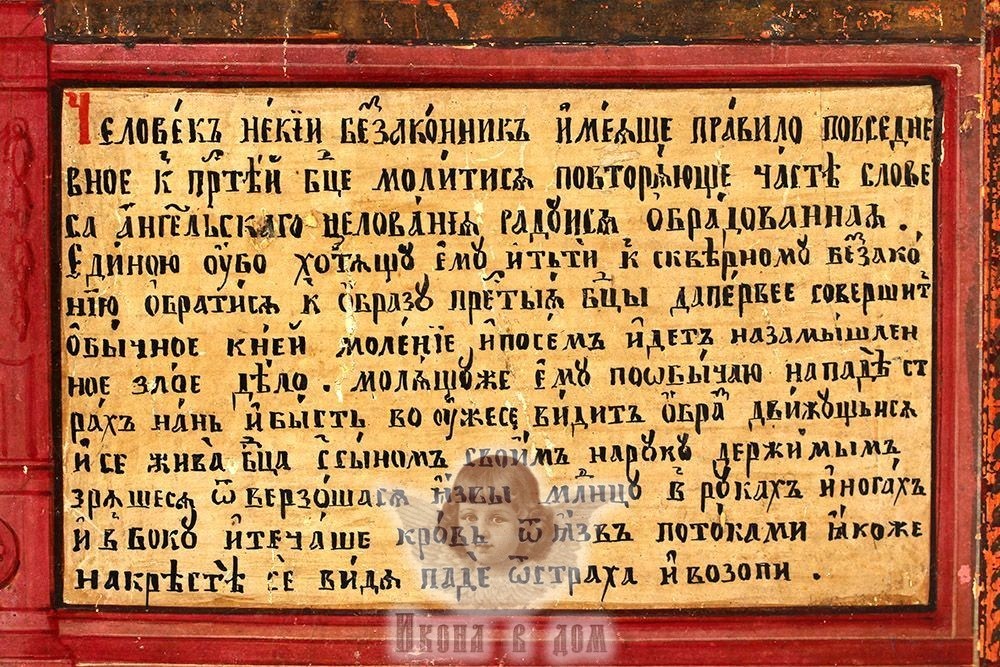 Человѣкъ нѣкїи беззако́нникъ и҆мѣѧше пра́вило повседне
вное к̾ пр҃тѣ́й бц҃е моли́тисѧ повторѧ́юще ча́стѣ слове
са а҆́нгельскаго целова́неѧ ра́дꙋисѧ ѻ҆брадованнаѧ .
Еди́ною оу҆́бо хотѧ́щꙋ є҆мꙋ̀ и҆тьти̑ к̾ скве́рномꙋ беззако́
нїю ѻ҆брати́сѧ к̾ ѻ҆́бразꙋ пре҃тыѧ бц҃ы да пе́рвее соверши́т
ѻ҆бы́чное к не́й моле́нїе и҆ посе́мъ и҆́детъ на замы́шлен
ное зло́е дѣ́ло . молѧ́щꙋже є҆мꙋ̀ по ѡ҆бы́чаю нападѐ ст
ра́хъ на́нь и҆ бы́сть во оу҆́жесе ви́дитъ ѻ҆́бра движꙋщьисѧ
и҆ се жива̀ бц҃а с̾ сы́номъ свои́мъ на рꙋкꙋ̀ держи́мымъ
зрѧ́шесѧ ѿверзо́шасѧ ꙗ҆́звы млн҃цꙋ в̾ рꙋка́хъ и҆ нога́хъ
и҆ в̾ бокꙋ̀ и҆ теча́ше кро́вь ѿ ꙗ҆́звъ пото́ками ꙗ҆́коже
на кре́стѣ сѐ ви́дѧ падѐ ѿ стра́ха и҆ возопи̑ .
Икона в дом